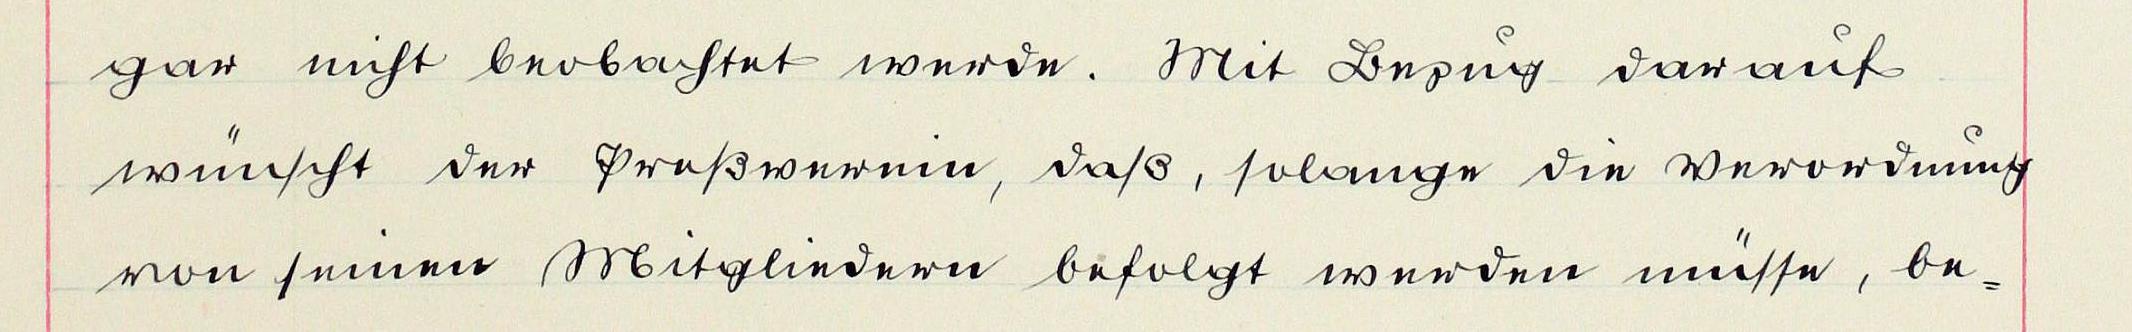 gar nicht beobachtet werde. Mit Bezug darauf
wünscht der Preßverein, daß, solange die Verordnung
von seinen Mitgliedern befolgt werden müsse, be=